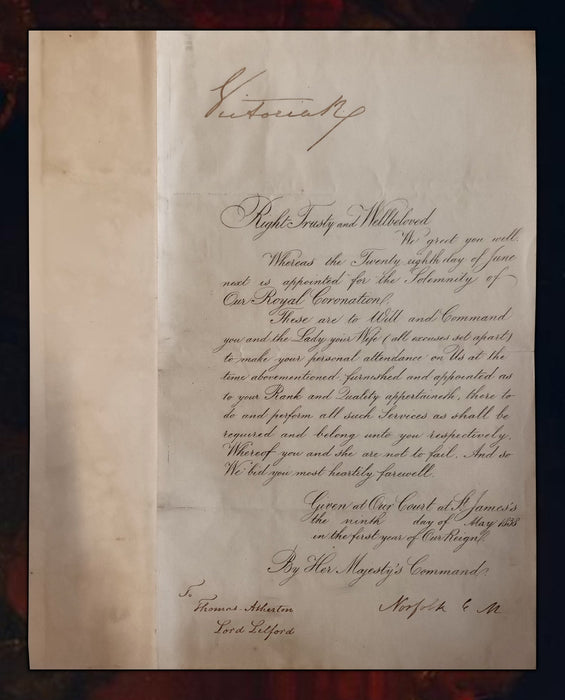 Victoria R
Right Trusty and Wellbeloved
We greet you well.
Whereas the Twenty eighth day of June
next is appointed for the Solemnity of
Our Royal Coronation.
These are to Will and Command
you and the Lady your Wife (all excuses set apart)
to make your personal attendance on Us at the
time abovementioned, furnished and appointed as
to your Rank and Quality appertaineth, there to
do and perform all such Services as shall be
required and belong unto you respectively.
Whereof you and she are not to fail. And so
We bid you most heartily farewell.
Given at Our Court at St. James's
the ninth day of May 1838
in the first year of Our Reign.
By Her Majesty's Command.
To
Thomas Atherton
Lord Lilford
Norfolk E M